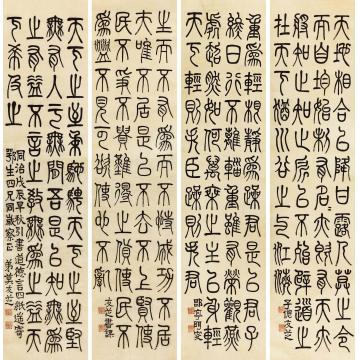 天地相合以降甘露人莫之令
而自均始制有名名亦既有夫亦
將知止知止所以不殆譬道之
在天下猶川谷之與江海
子偲友芝
重為輕根靜為躁君是以君子
終日行不離輜重雖有榮觀
燕處超然如何萬乘之主而以身輕
天下輕則失臣躁則失君
郘亭眲叟
生而不有為而不恃功成不居
夫唯不居是以不去不上賢使
民不爭不貴難得之貨使民不
為盜不見可欲使心不亂
友芝書課
天下之至柔馳騁天下之至堅
無有入于無間吾是以知無為
之有益不言之教無為之益天
下希及之
同治戊辰早秋引書道德言四紙遠寄
鄂生四兄同歲察正 弟莫友芝